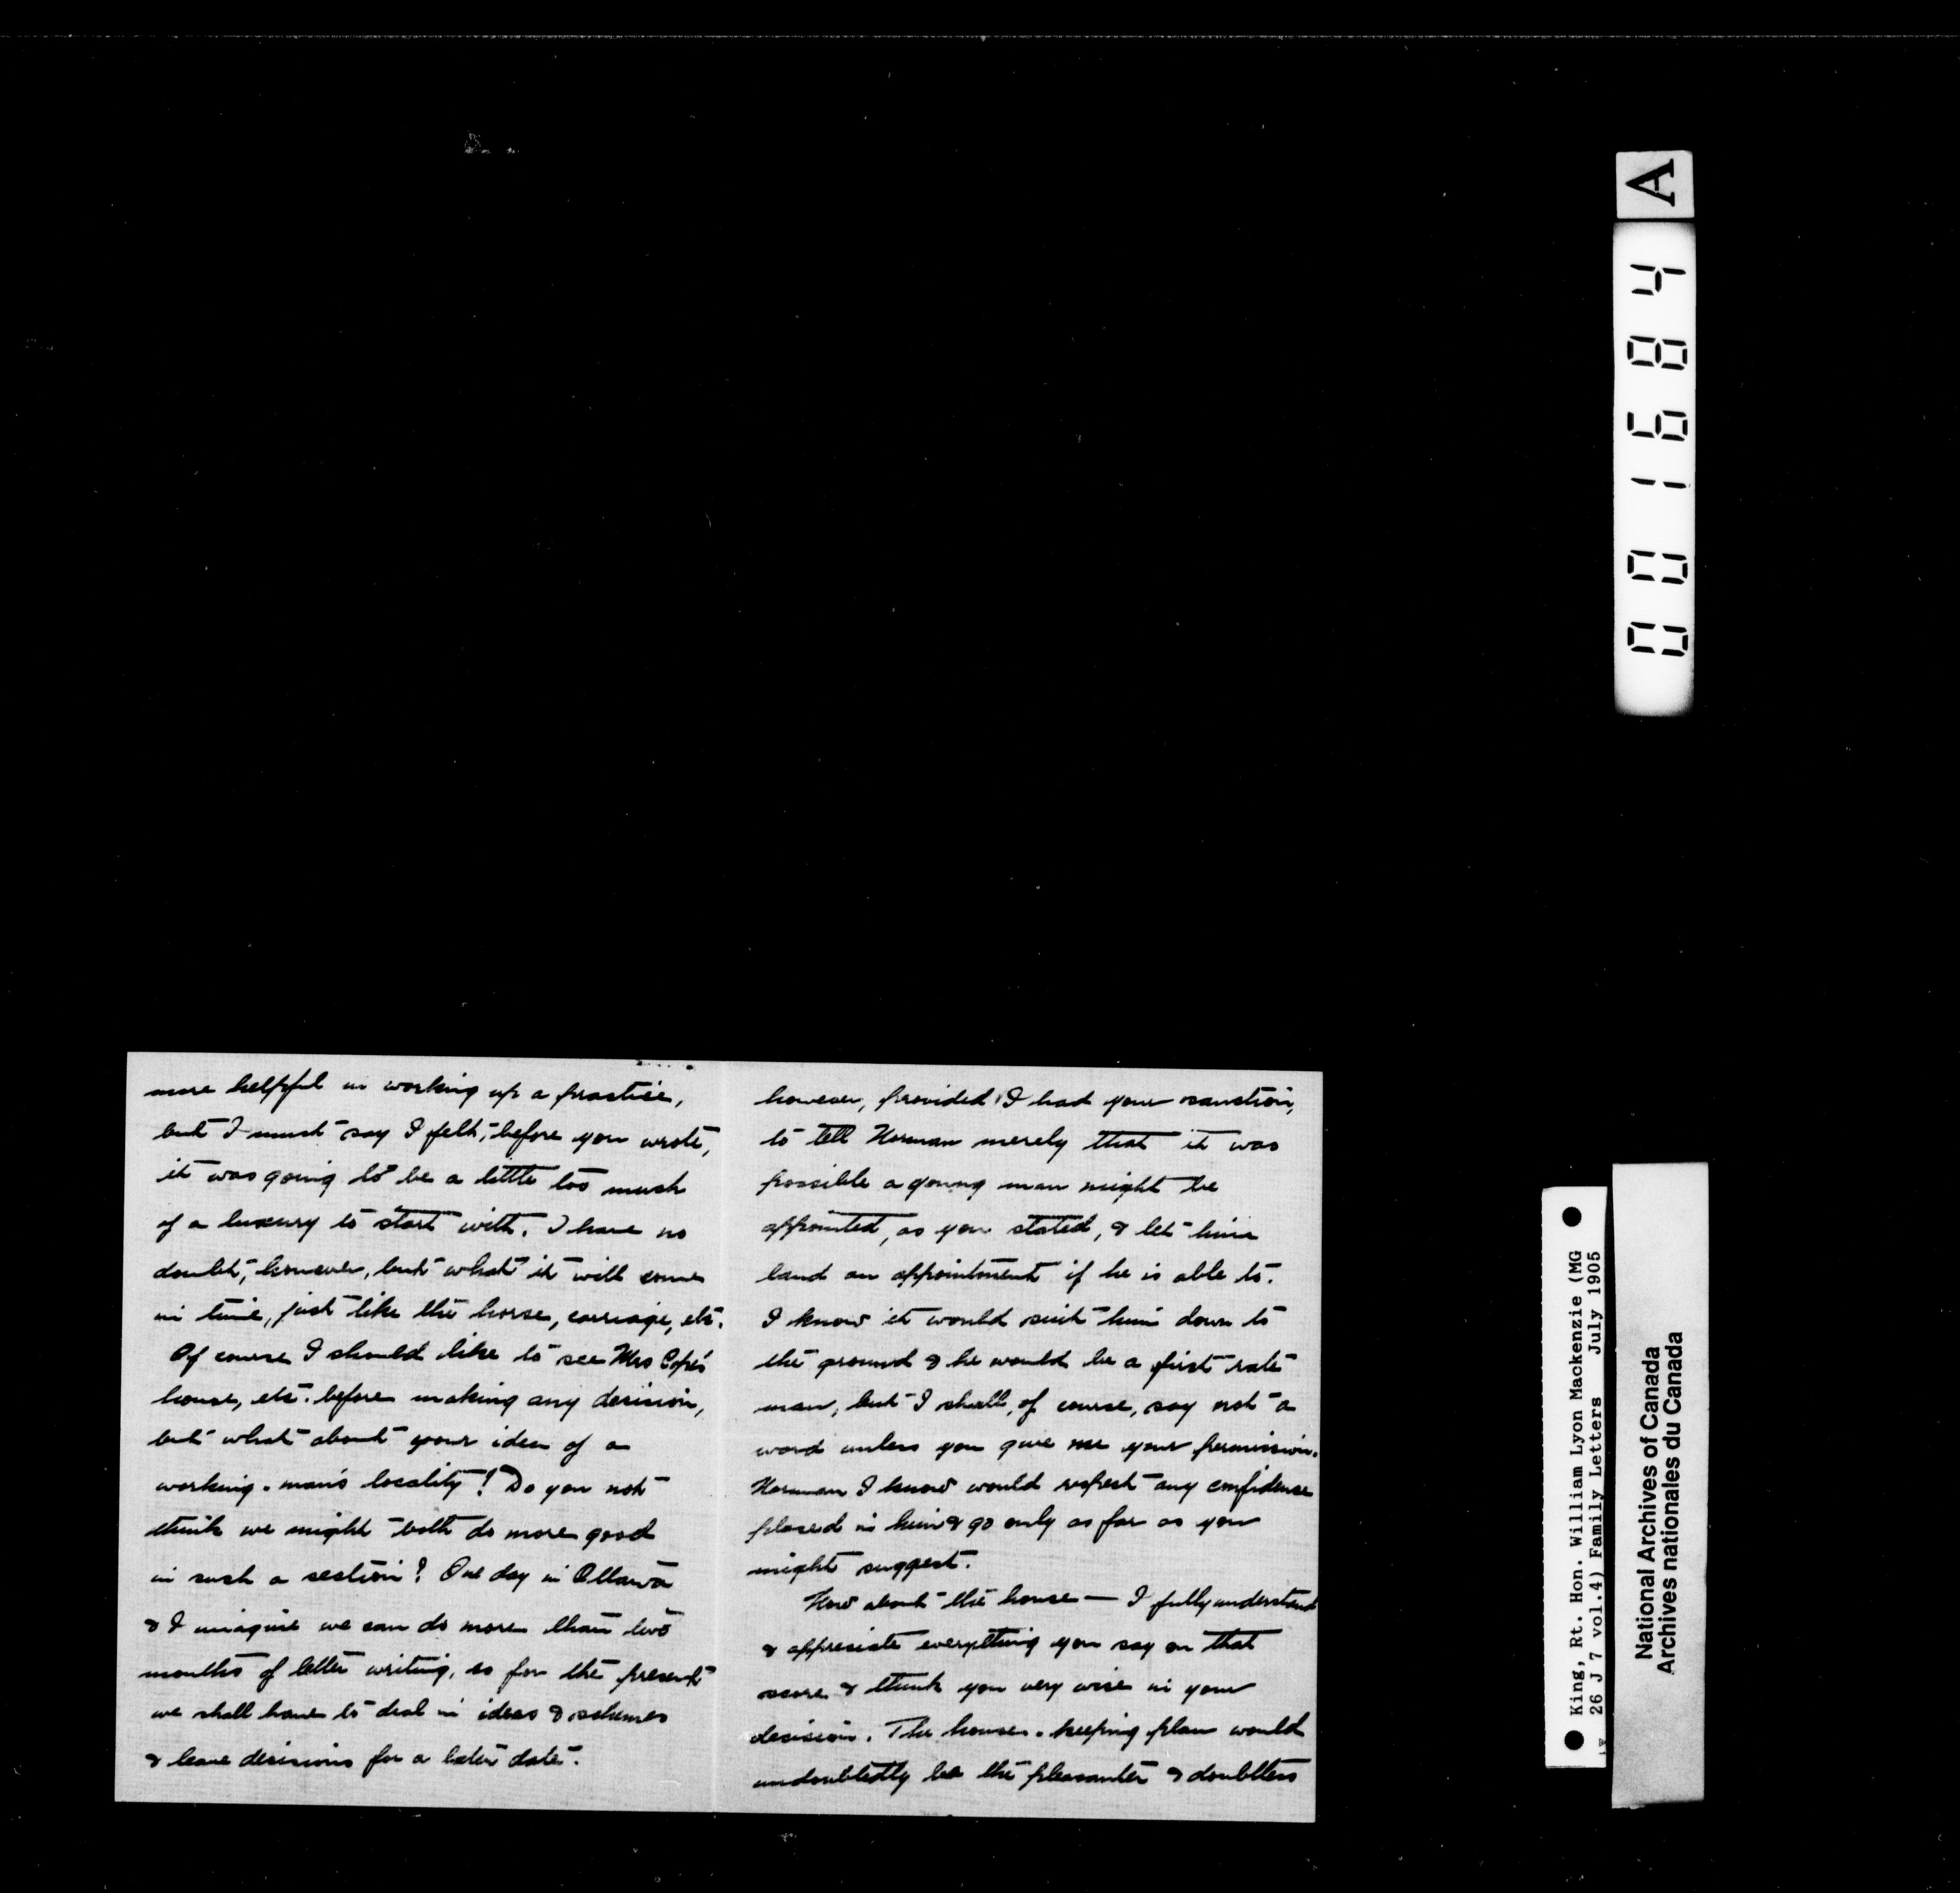 more helpful in working up a practice,
but I must say I felt, before you wrote,
it was going to be a little too much
of a luxury to start with. I have no
doubt, however, but what it will come
in time, just like the horse, carriage, etc.
Of course I should like to see Mrs Cope's
house, etc. before making any decision,
but what about your idea of a
working-man's locality! Do you not
think we might both do more good
in such a section? One day in Ottawa
& I imagine we can do more than two
months of letter writing, so for the present
we shall have to deal in ideas & schemes
& leave decisions for a later date.
however, provided I had your sanction,
to tell Norman merely that it was
possible a young man might be
appointed, as you stated, & let him
land an appointment if he is able to.
I know it would suit him down to
the ground & he would be a first rate
man, but I shall, of course, say not a
word unless you give me your permission.
Norman I know would respect any confidence
placed in him & go only as far as you
might suggest.
Now about the house — I fully understand
& appreciate everything you say on that
score & think you very wise in your
decision. The house-keeping plan would
undoubtedly be the pleasanter & doubtless
A
001684
King, Rt. Hon. William Lyon Mackenzie (MG
26 J 7 vol.4) Family Letters July 1905
National Archives of Canada
Archives nationales du Canada